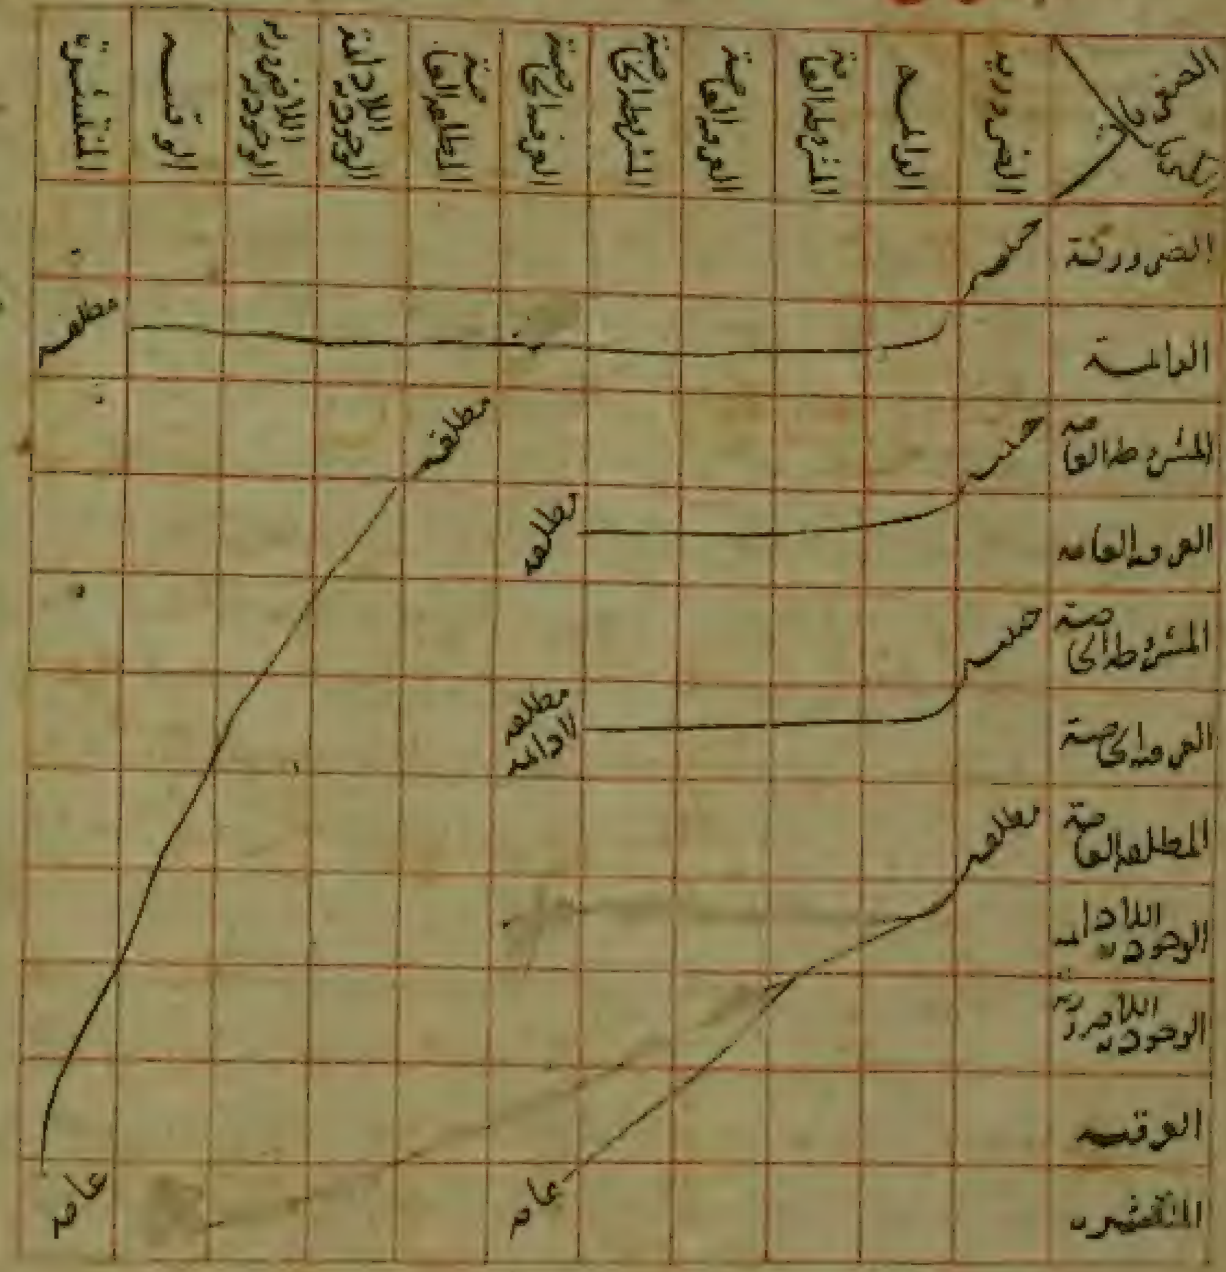 الصغريات
الكبريات
الضرورية
الدائمـه
المشروطه العامة
العرفيه العامة
المشروطه الخاصة
العرفيه الخاصة
المطلقه العامة
الوجوديه اللادائمة
الوجوديه اللاضروريه
الوقتيـه
المنتشرة
الضرورية
حينيه
الدائمـة
مطلقه
المشروطه العامه
حينيه
مطلقه
العرفيه العامه
مطلقه
المشروطه الخاصة
حينيه
العرفيه الخاصة
مطلقه
لادائمه
المطلقه العامة
مطلقه
الوجوديه اللادائمه
الوجوديه اللاضروريه
الوقتيه
المنتشره
عامه
عامه